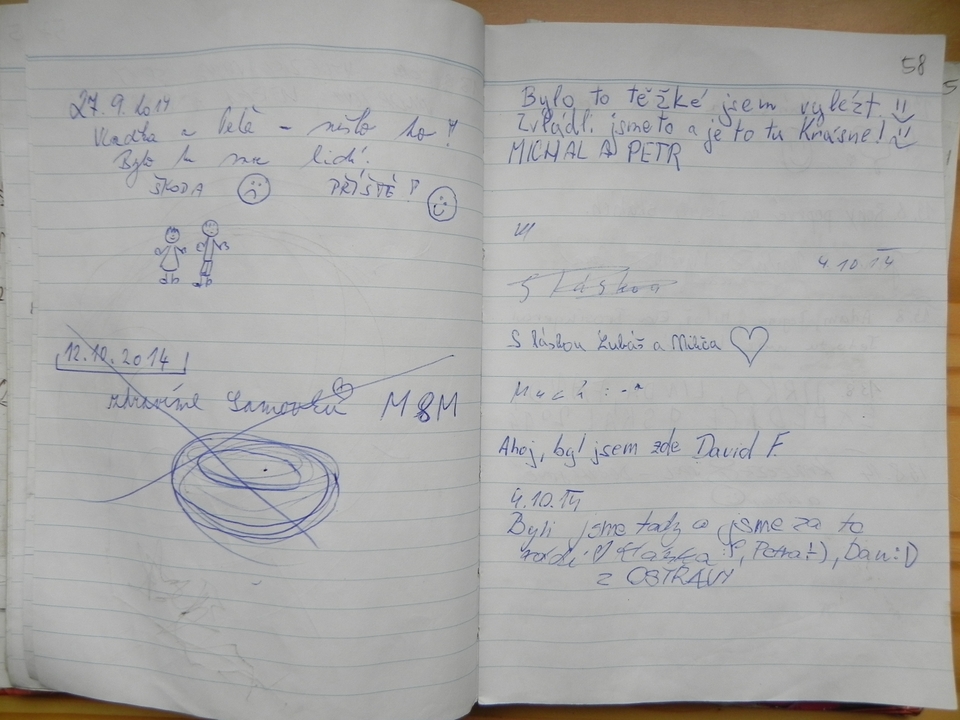 27.9.2014
Vlaďka a Péťa - nešlo to!
Bylo tu moc lidí.
ŠKODA PŘÍŠTĚ!
12.10.2014
zdravíme M & M
58
Bylo to těžké jsem vylézt.
Zvládli jsme to a je to tu Krásne!
MICHAL A PETR
4.10.14
S láskou
S láskou Ľubáš a Mišiča
Ahoj, byl jsem zde David F.
4.10.14
Byli jsme tady a jsme za to
rádi Petra :), Dan :D
z OSTRAVY